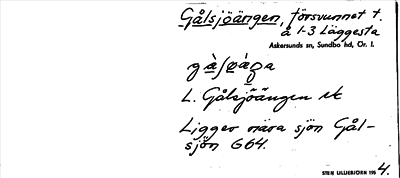 Gålsjöängen, försvunnet t.
å 1-3 Läggesta
Askersunds sn, Sundbo hd, Ör. l.
L. Gålsjöängen
Ligger nära sjön Gål-
sjön G64.
STEN LILLIEBJÖRN 195 4.